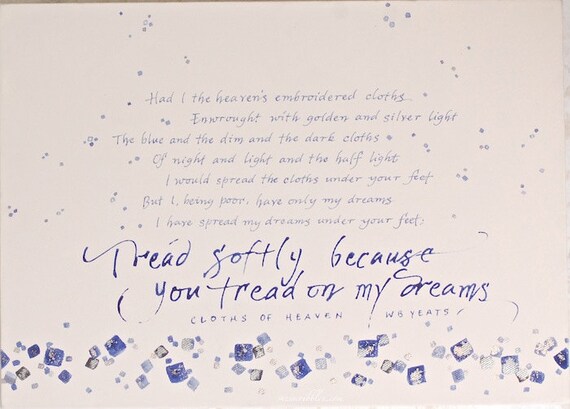 Had I the heaven's embroidered cloths
Enwrought with golden and silver light
The blue and the dim and the dark cloths
Of night and light and the half light
I would spread the cloths under your feet
But I, being poor, have only my dreams
I have spread my dreams under your feet;
Tread softly because
you tread on my dreams
CLOTHS OF HEAVEN WB YEATS